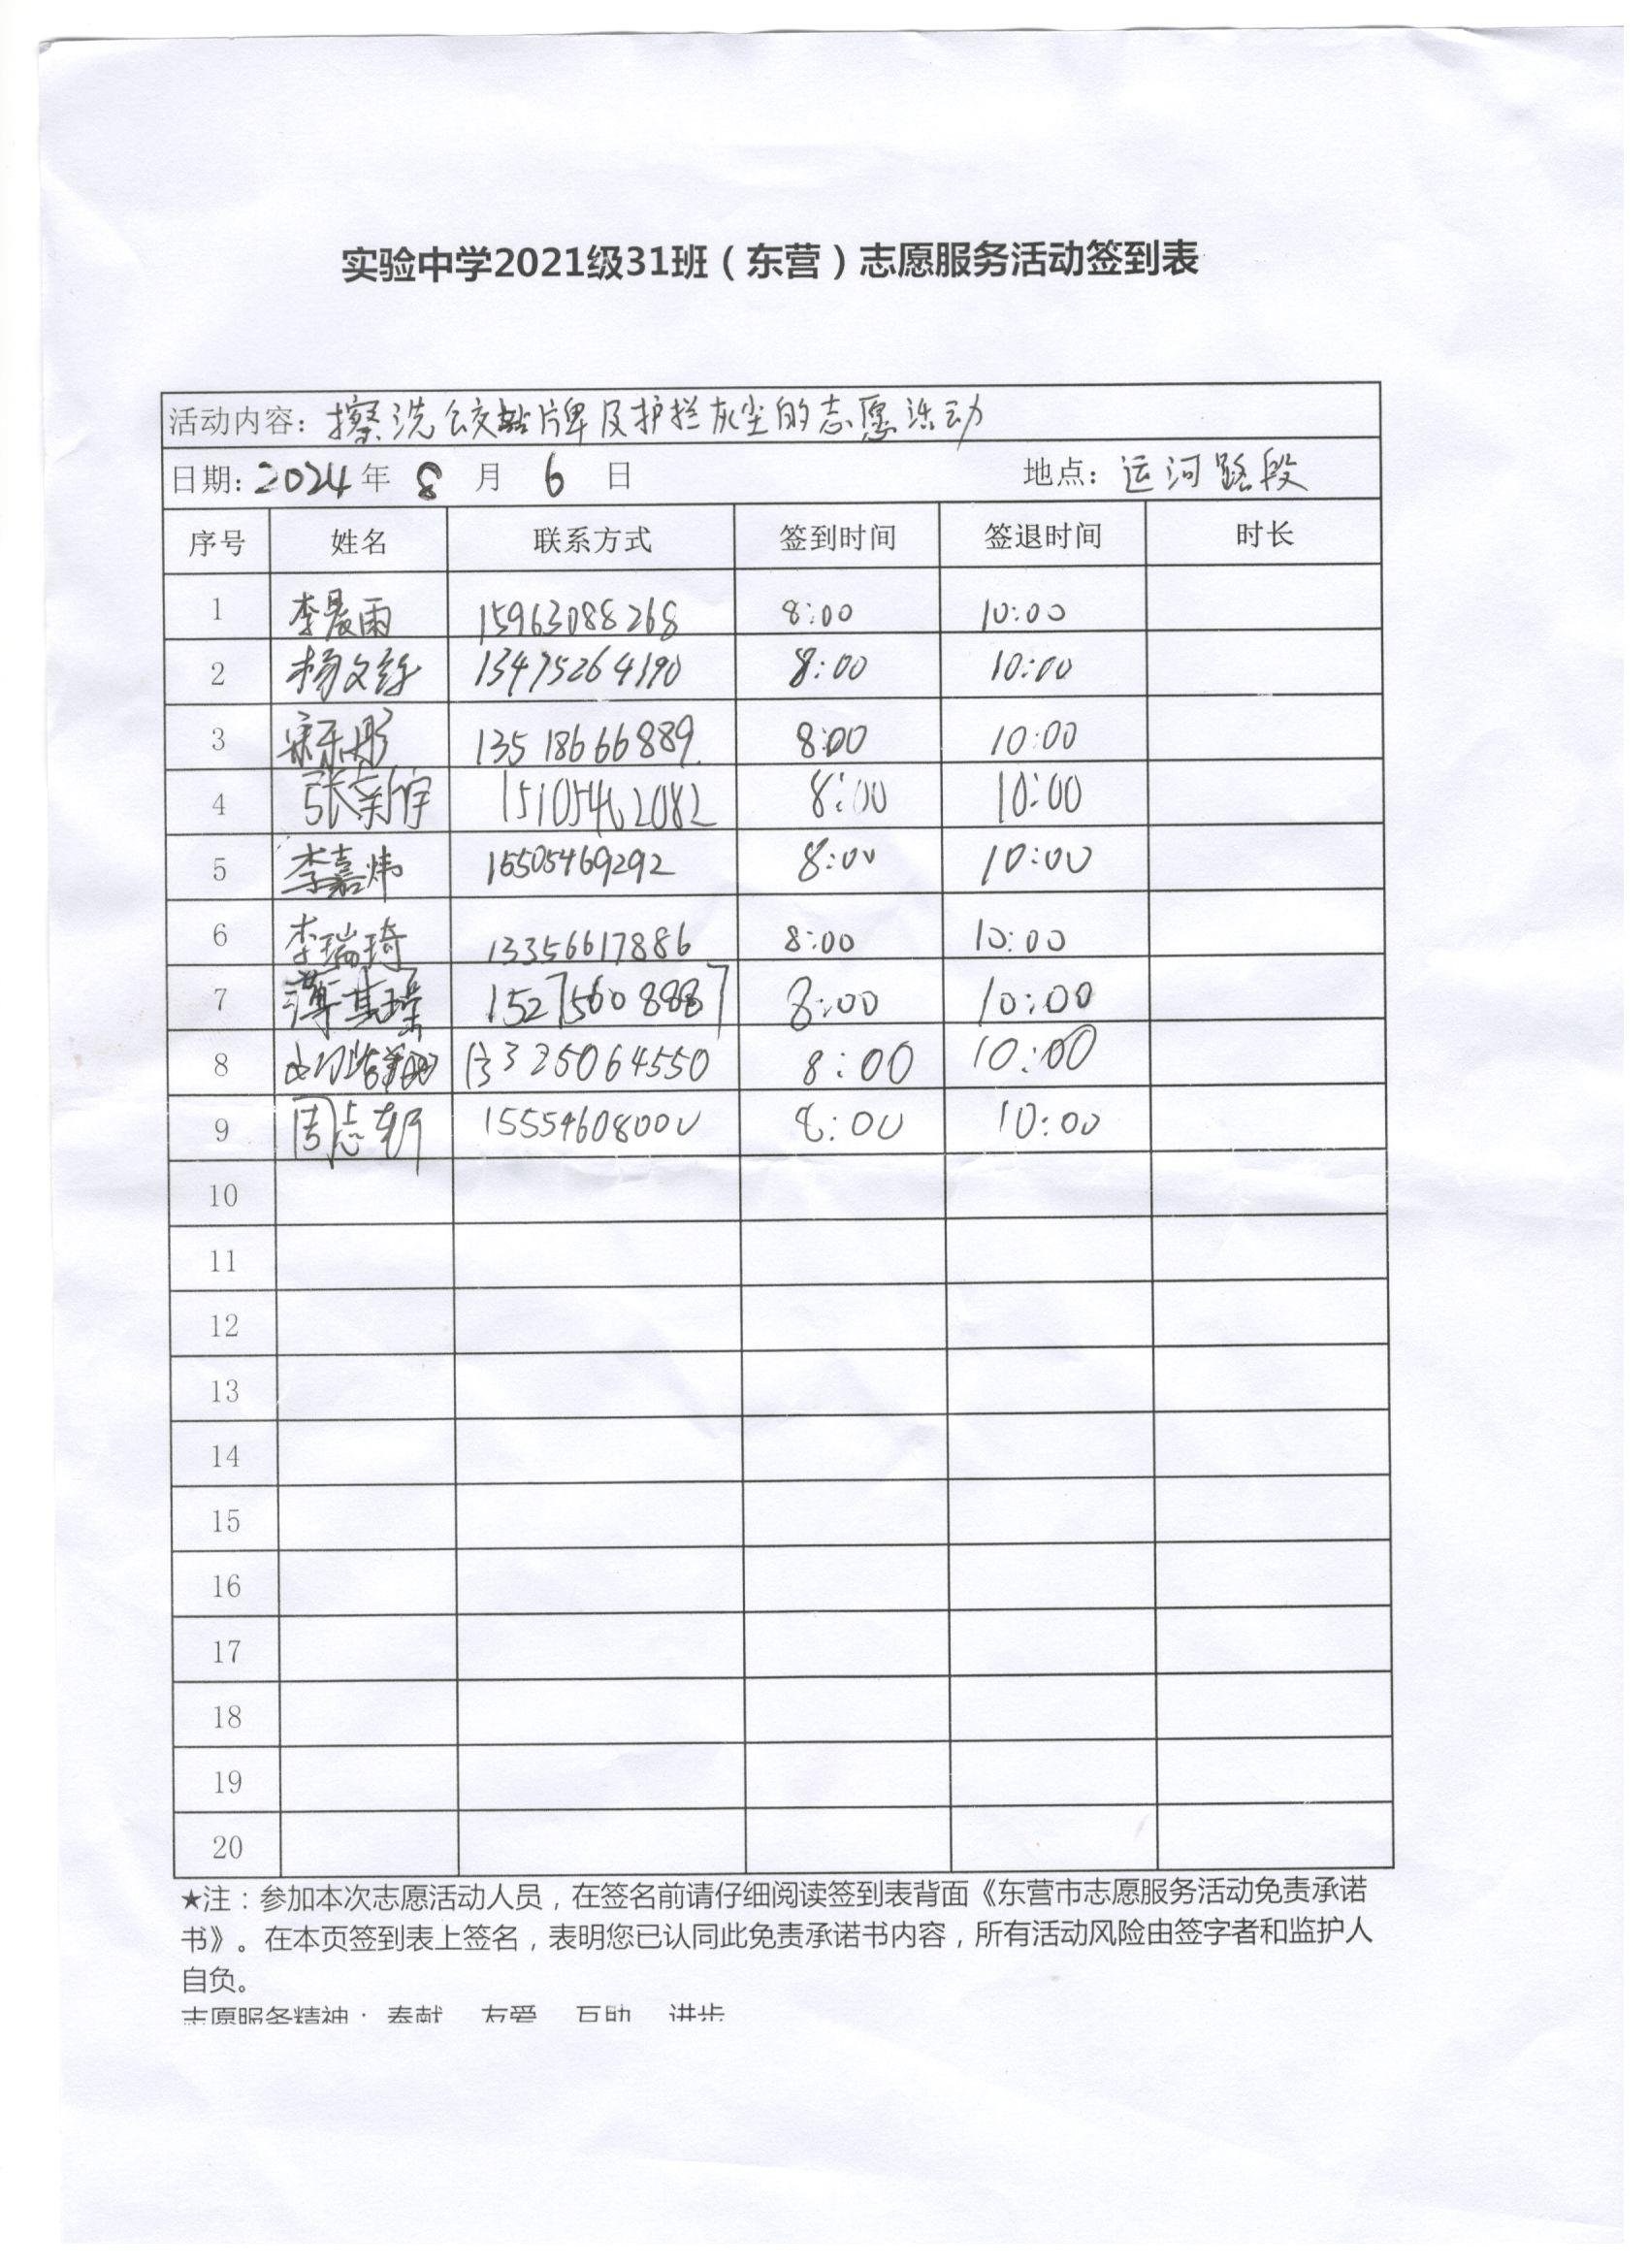 实验中学2021级31班（东营）志愿服务活动签到表
活动内容：擦洗公交站牌及护栏灰尘的志愿活动
日期：2024年 8 月 6 日 地点：运河路段
序号 姓名 联系方式 签到时间 签退时间 时长
1 李晨雨 15963088268 8:00 10:00
2 杨文 13475264190 8:00 10:00
3 宋乐彤 13518666889 8:00 10:00
4 张新宇 15105462082 8:00 10:00
5 李嘉炜 15505469292 8:00 10:00
6 李瑞琦 13356617886 8:00 10:00
7 薄其璟 15275608887 8:00 10:00
8 13325064550 8:00 10:00
9 周志轩 15554608000 8:00 10:00
10
11
12
13
14
15
16
17
18
19
20
★注：参加本次志愿活动人员，在签名前请仔细阅读签到表背面《东营市志愿服务活动免责承诺
书》。在本页签到表上签名，表明您已认同此免责承诺书内容，所有活动风险由签字者和监护人
自负。
志愿服务精神： 奉献 友爱 互助 进步